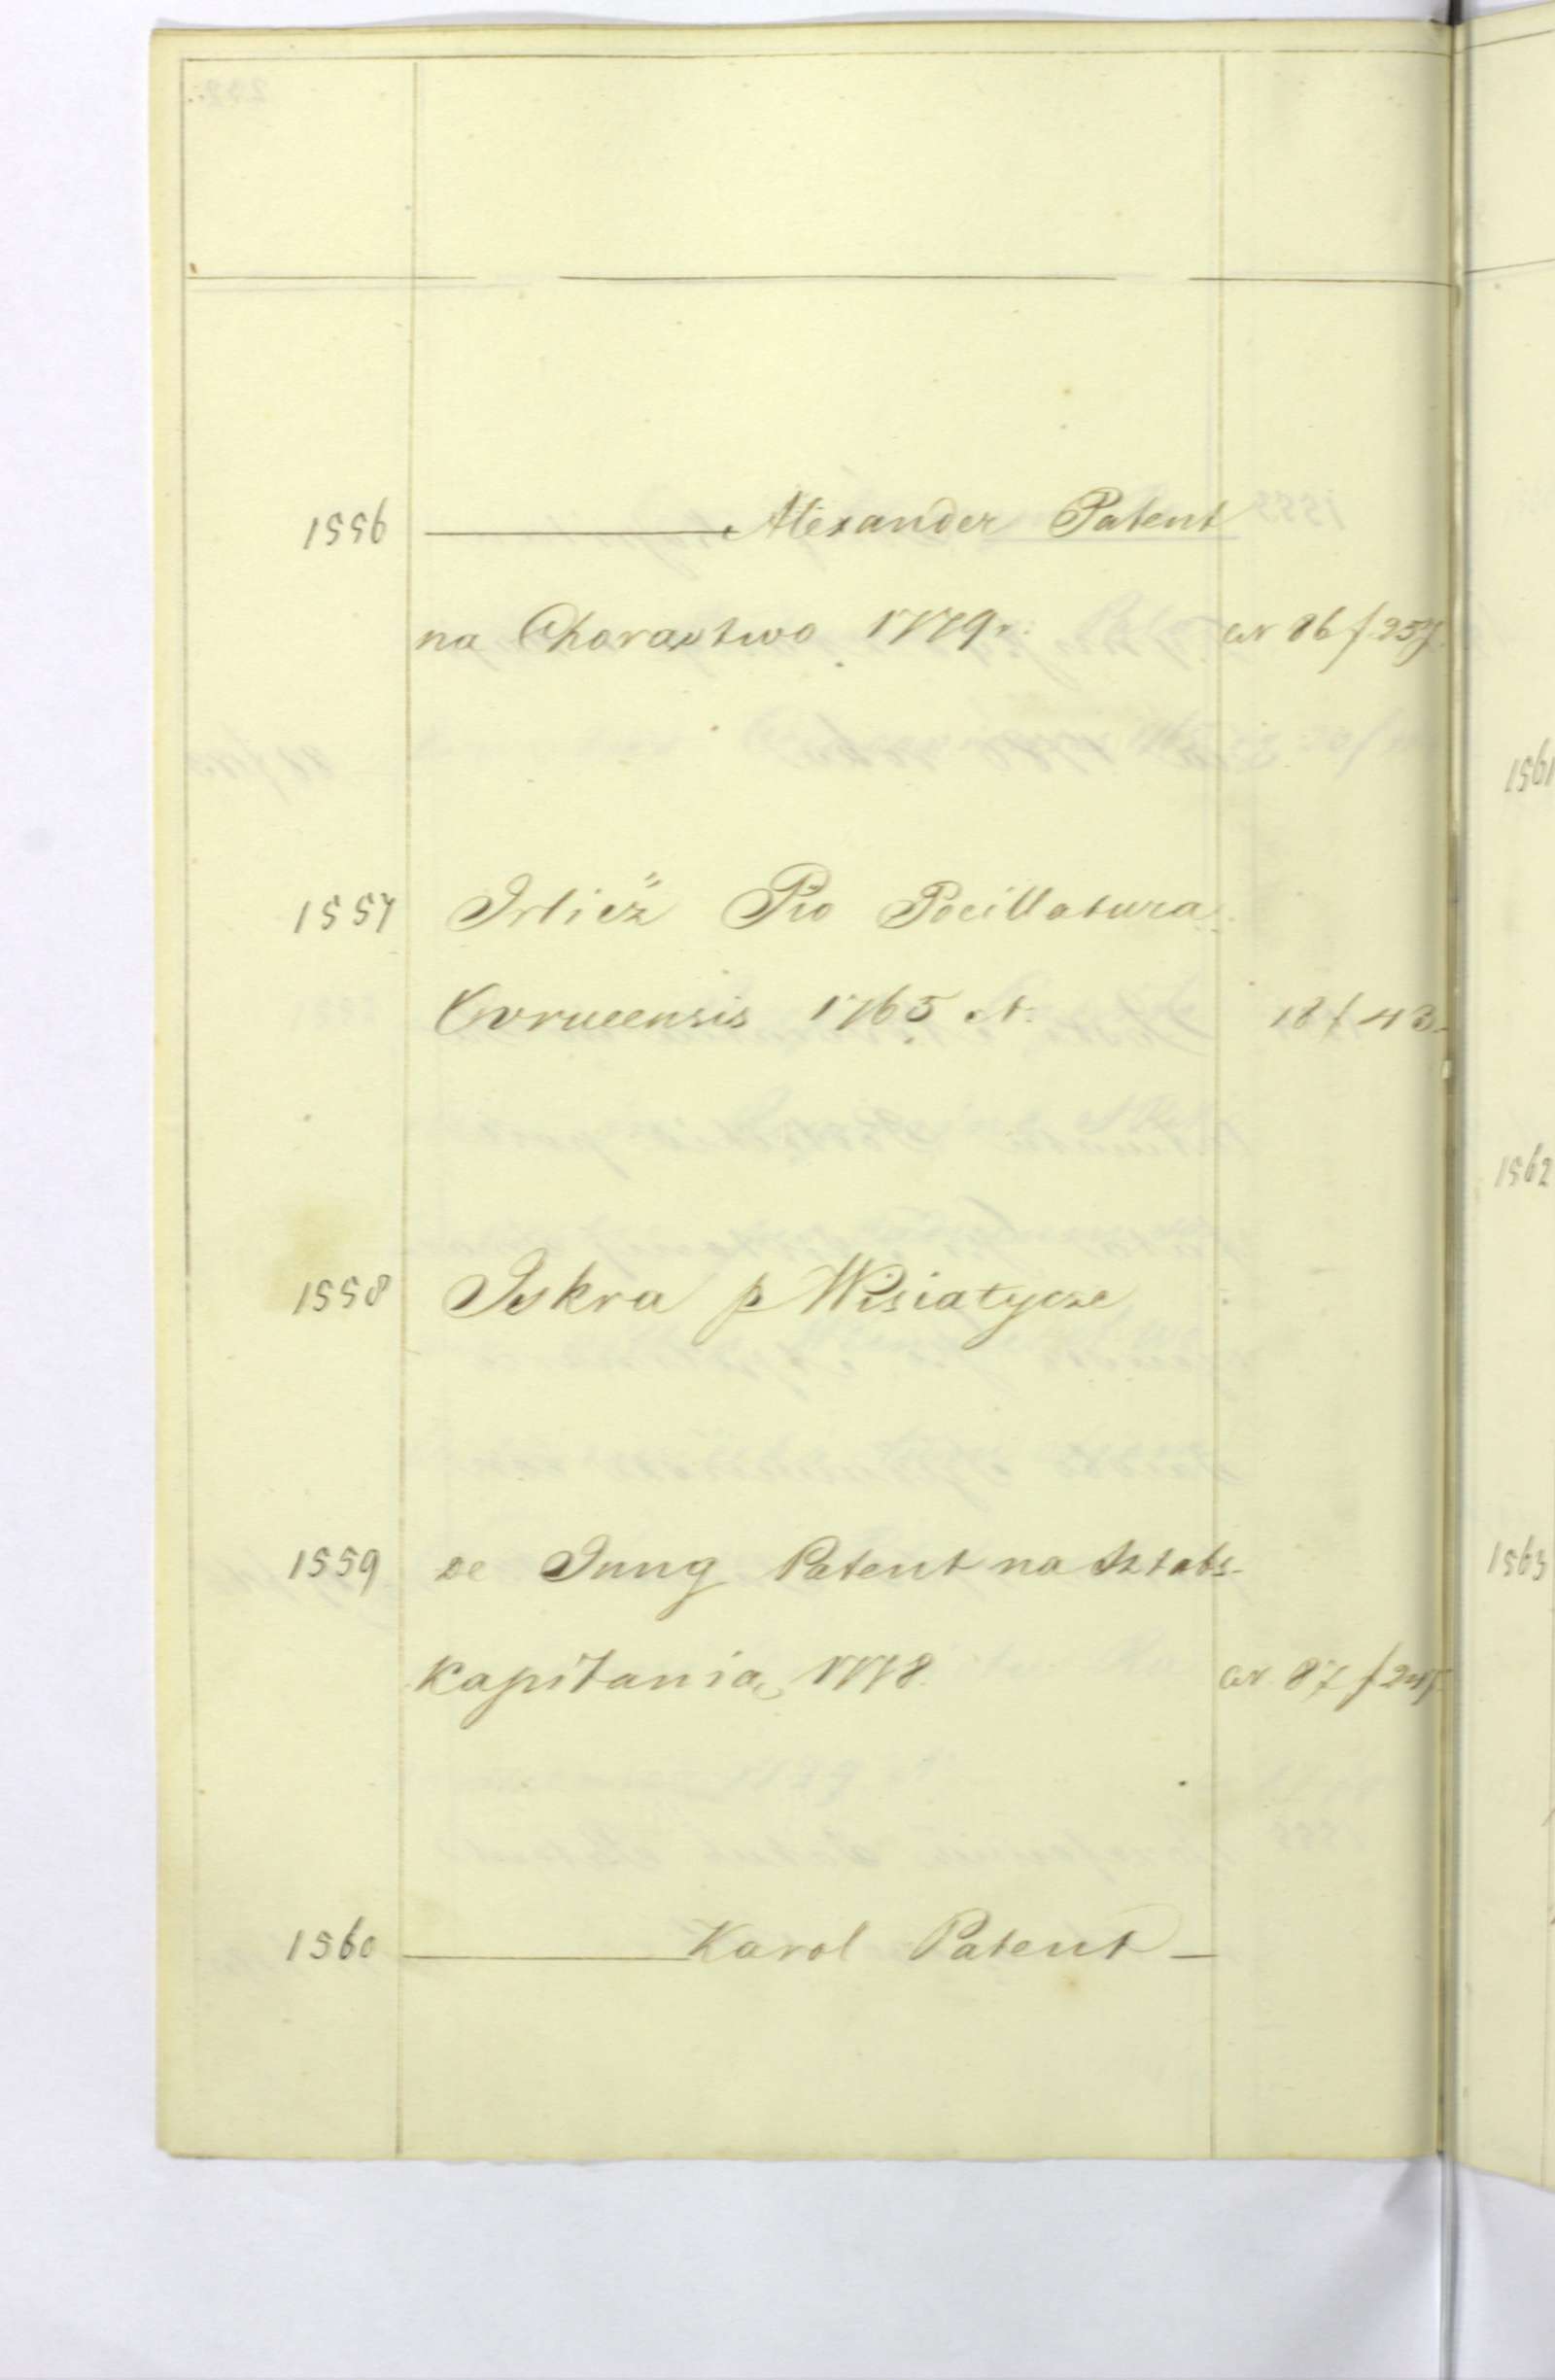 1556 ———— Alexander Patent
na Chorąstwo 1779 r. CN 86 f 257.
1557 Irlicz Pro Pocillatura
Ovrucensis 1765 A. 18 f 43
1558 Iskra p Wisiatycze
1559 de Jung Patent na Sztabs-
kapitania 1778. CN 87 f
1560 ———— Karol Patent —
1561
1562
1563